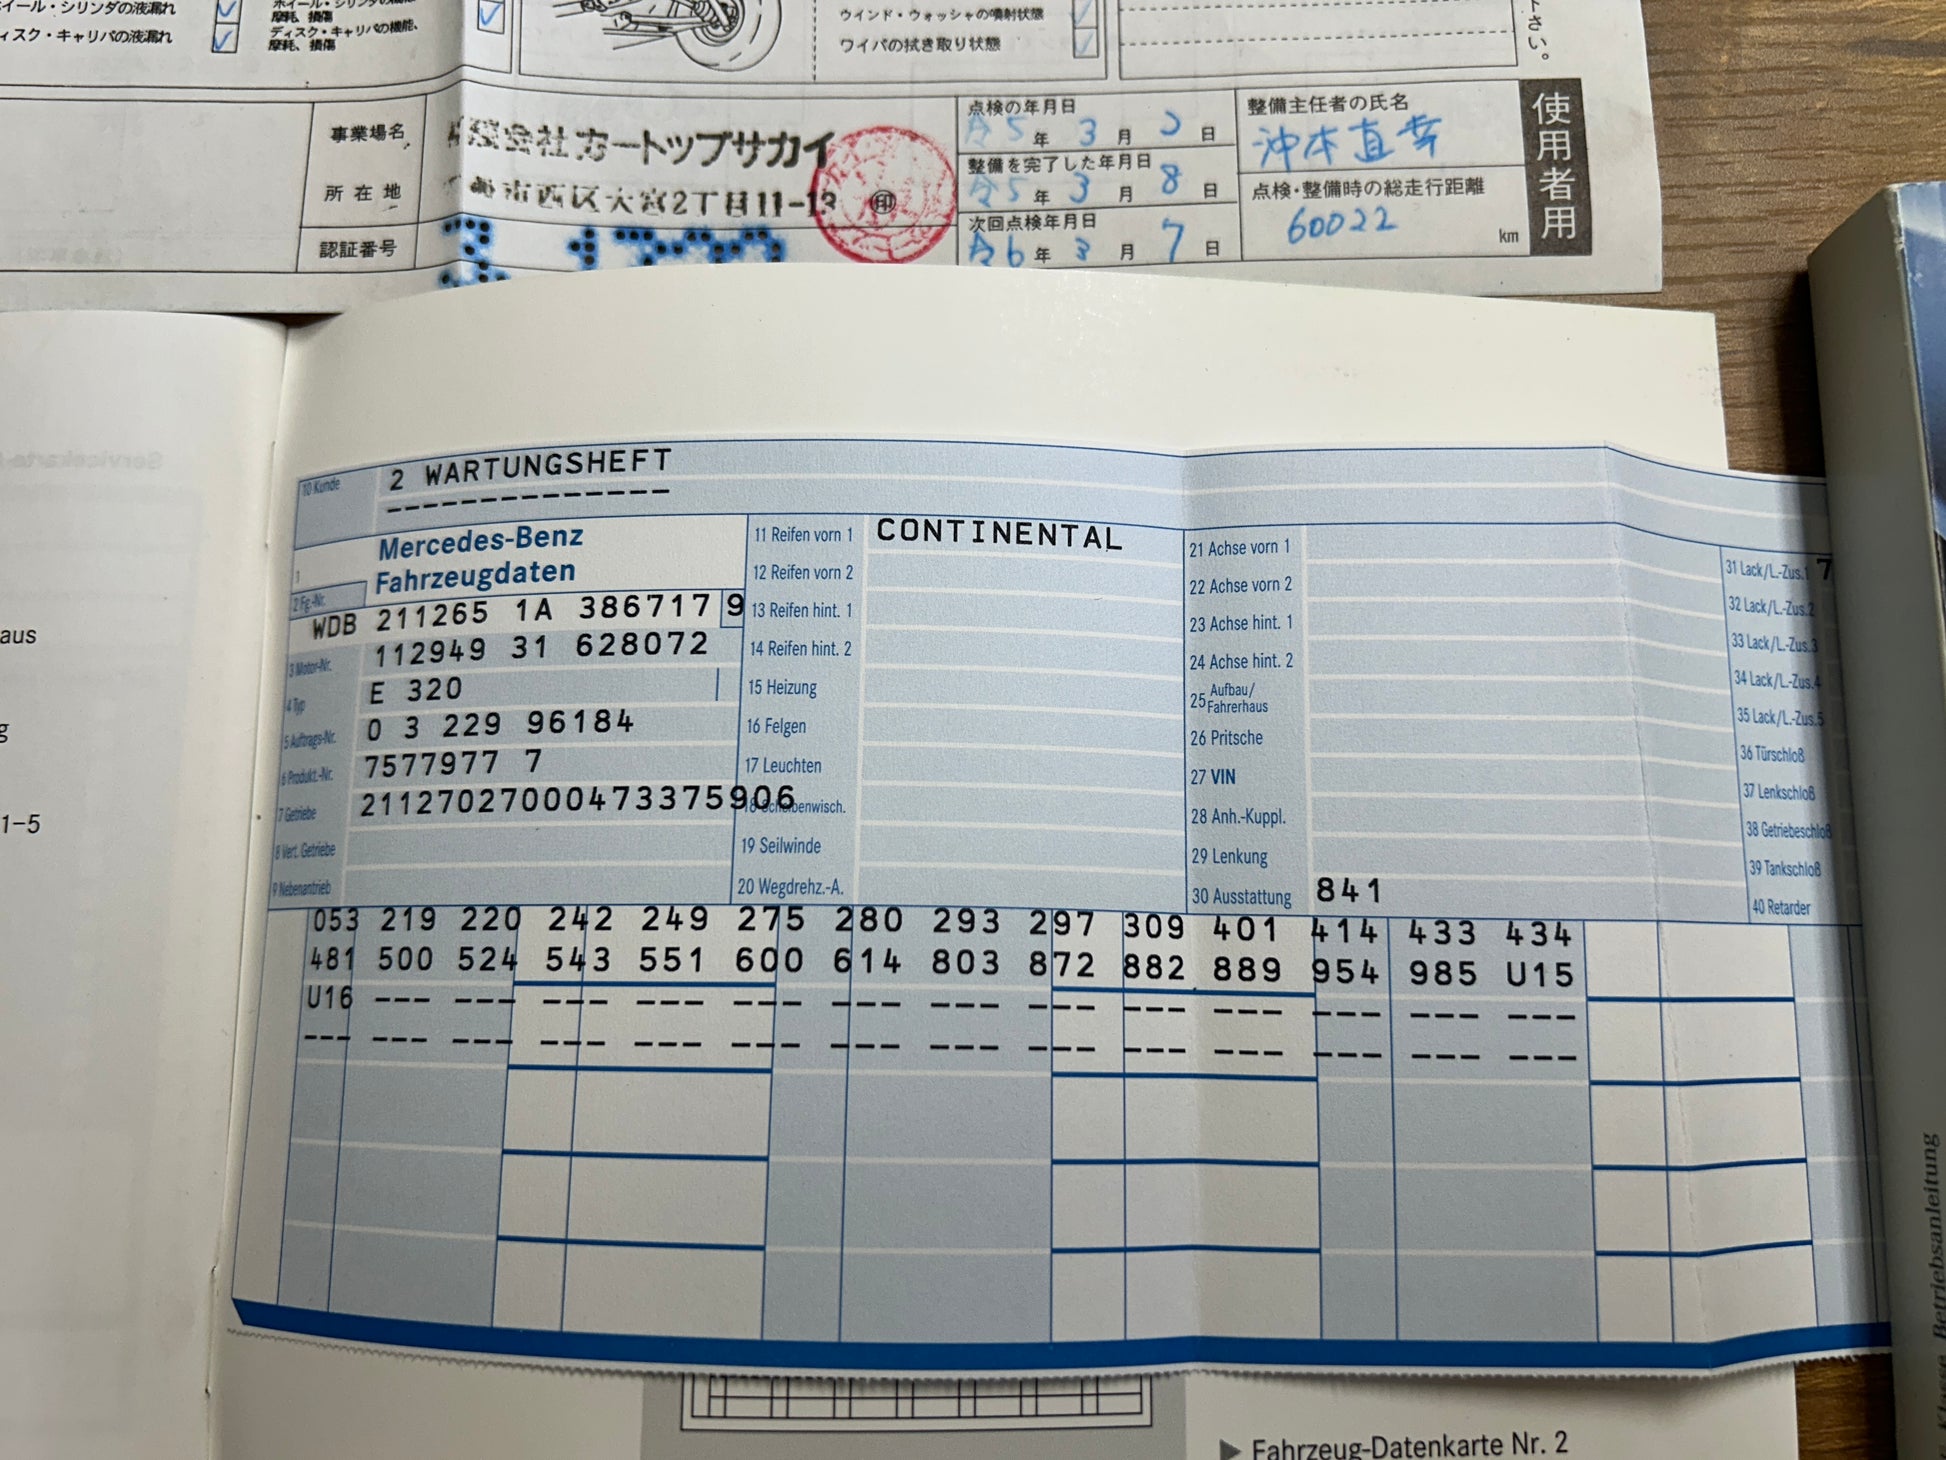 イール・シリンダの液漏れ
摩耗、損傷
ィスク・キャリパの液漏れ
ディスク・キャリパの機能、
摩耗、損傷
ウインド・ウォッシャの噴射状態
ワイパの拭き取り状態
下さい。
使用者用
事業場名
会社カートップサカイ
所在地
市西区大宮2丁目11-13
印
認証番号
点検の年月日
5年 3月 2日
整備を完了した年月日
5年 3月 8日
次回点検年月日
6年 3月 7日
整備主任者の氏名
沖本直幸
点検・整備時の総走行距離
60022 km
aus
g
1-5
10 Kunde
2 WARTUNGSHEFT
1
Mercedes-Benz
Fahrzeugdaten
2 Fg.-Nr.
WDB 211265 1A 386717 9
3 Motor-Nr.
112949 31 628072
4 Typ
E 320
5 Auftrags-Nr.
0 3 229 96184
6 Produkt.-Nr.
7577977 7
7 Getriebe
21127027000473375906
8 Vert. Getriebe
9 Nebenantrieb
11 Reifen vorn 1 CONTINENTAL
12 Reifen vorn 2
13 Reifen hint. 1
14 Reifen hint. 2
15 Heizung
16 Felgen
17 Leuchten
18 Scheibenwisch.
19 Seilwinde
20 Wegdrehz.-A.
21 Achse vorn 1
22 Achse vorn 2
23 Achse hint. 1
24 Achse hint. 2
25 Aufbau/
Fahrerhaus
26 Pritsche
27 VIN
28 Anh.-Kuppl.
29 Lenkung
30 Ausstattung 841
31 Lack/L.-Zus.1 7
32 Lack/L.-Zus.2
33 Lack/L.-Zus.3
34 Lack/L.-Zus.4
35 Lack/L.-Zus.5
36 Türschloß
37 Lenkschloß
38 Getriebeschloß
39 Tankschloß
40 Retarder
053 219 220 242 249 275 280 293 297 309 401 414 433 434
481 500 524 543 551 600 614 803 872 882 889 954 985 U15
U16 --- --- --- --- --- --- --- --- --- --- --- --- ---
--- --- --- --- --- --- --- --- --- --- --- --- --- ---
Fahrzeug-Datenkarte Nr. 2
Klasse Betriebsanleitung